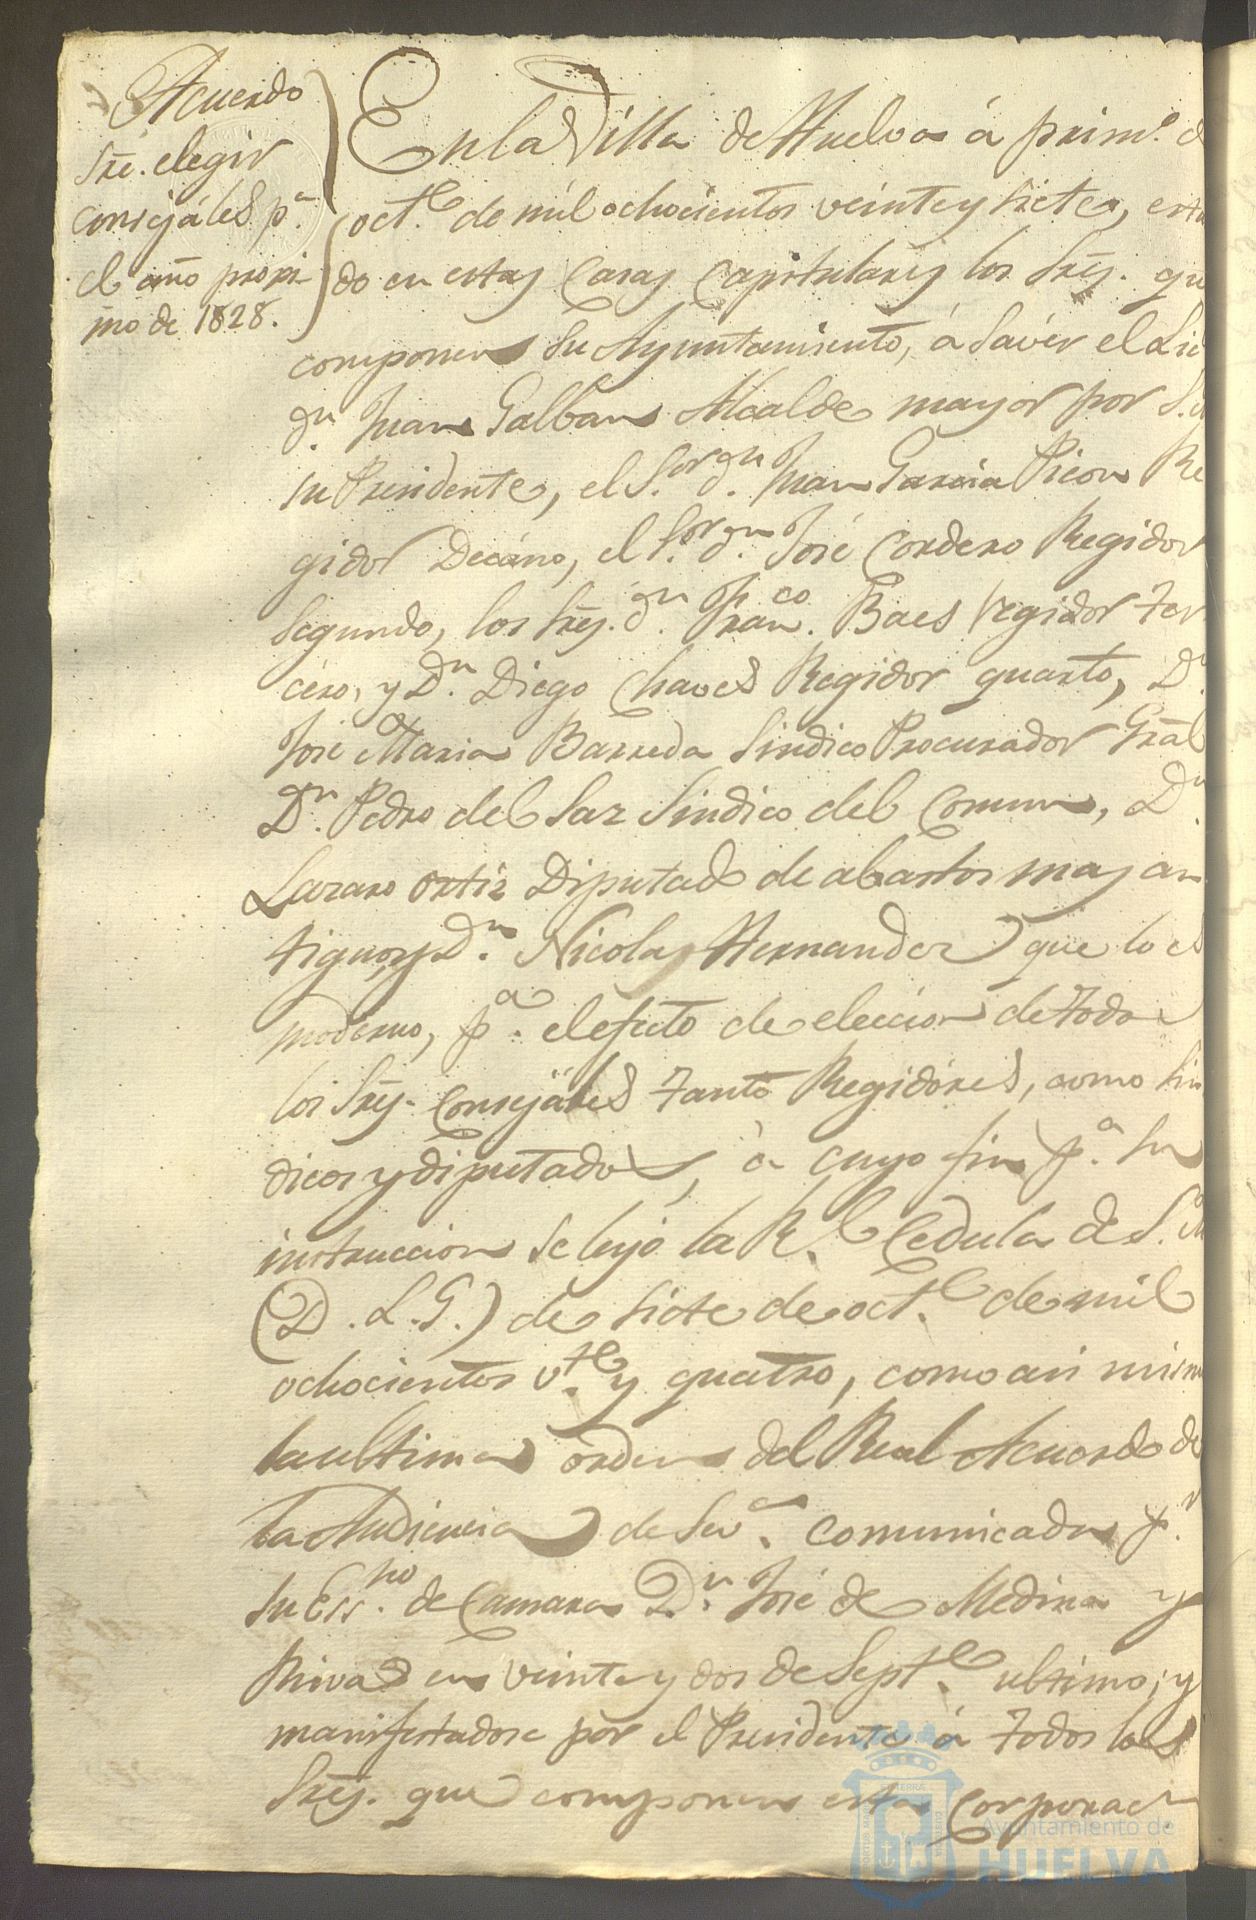 Acuerdo
sre. elegir
consejáles pa.
el año proxi-
mo de 1828.
En la Villa de Huelva á primo. d
octe. de mil ochocientos veinte y siete, esta
do en estas Casas Capitulares los Sres. qu
componen su Ayuntamiento, á savér el Lic
dn. Juan Galban Alcalde mayor por S. M
su Presidente, el Sor. dn. Juan Garcia Picon Re
gidor Decáno, el Sor. dn. José Cordero Regidor
Segundo, los Sres. dn. Franco. Baes regidor ter
céro, y Dn. Diego Chaves Regidor quarto, Dn.
José Maria Barreda Sindico Procurador Gral
Dn. Pedro del Saz Sindico del Comun, Dn.
Lazaro Ortiz Diputado de abastos mas an
tiguo, y Dn. Nicolas Hernandez que lo es
moderno, pa. el efecto de eleccion de todos
los Sres. Consejáles tanto Regidóres, como Sin
dicos y diputados, à cuyo fin pa. su
instruccion se leyó la Rl. Cedula de S. M
(D. L. G.) de siete de octe. de mil
ochocientos vte. y quatro, como asi mismo
la ultima orden del Real Acuerdo de
la Audiencia de Seva. comunicada pr.
su Essno. de Camara Dn. José de Medina y
Rivas en veinte y dos de Septe. ultimo; y
manifestadose por el Presidente á todos los
Sres. que componen esta Corporacn.
Ayuntamiento de
HUELVA